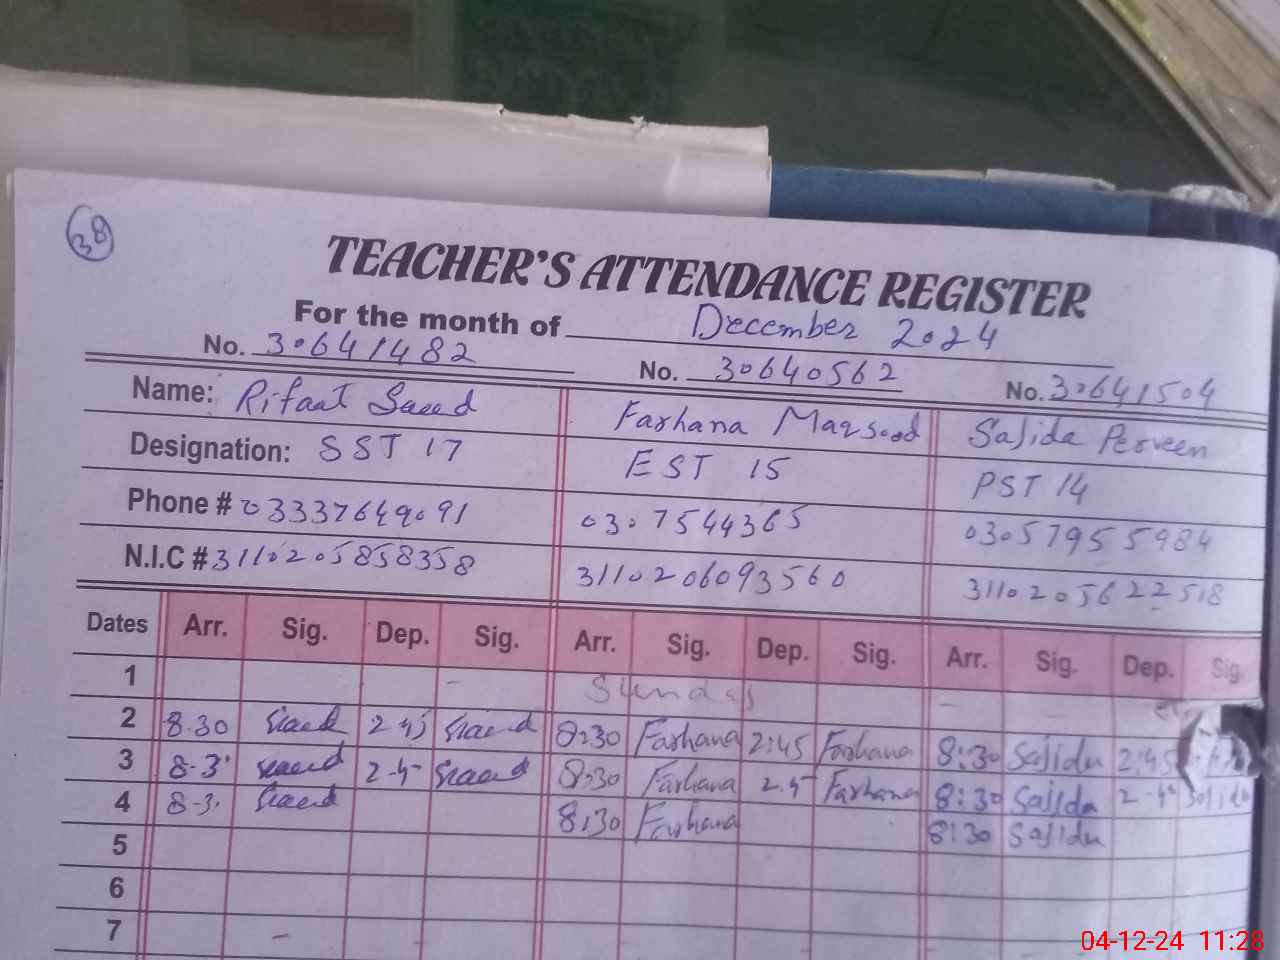 38
TEACHER'S ATTENDANCE REGISTER
For the month of December 2024
No. 30641482 No. 30640562 No. 30641504
Name: Rifaat Saeed Farhana Maqsood Sajida Perveen
Designation: SST 17 EST 15 PST 14
Phone # 03337649091 0307544365 03057955984
N.I.C # 3110205858358 3110206093560 3110205622518
Dates Arr. Sig. Dep. Sig. Arr. Sig. Dep. Sig. Arr. Sig. Dep. Sig.
1 Sunday
2 8.30 Saeed 2 45 Saeed 8:30 Farhana 2:45 Farhana 8:30 Sajida 2:45
3 8-3 Saeed 2-4 Saeed 8:30 Farhana 2.4 Farhana 8:30 Sajida 2-4 Sajida
4 8-3 Saeed 8:30 Farhana 8:30 Sajida
5
6
7
04-12-24 11:28